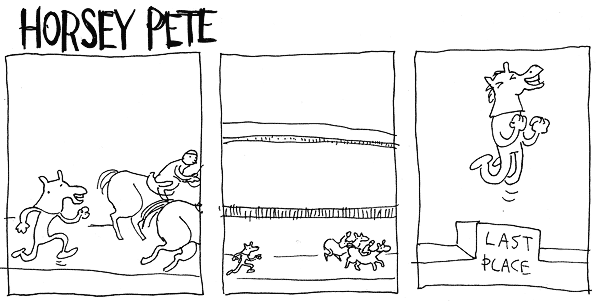 HORSEY PETE
LAST
PLACE